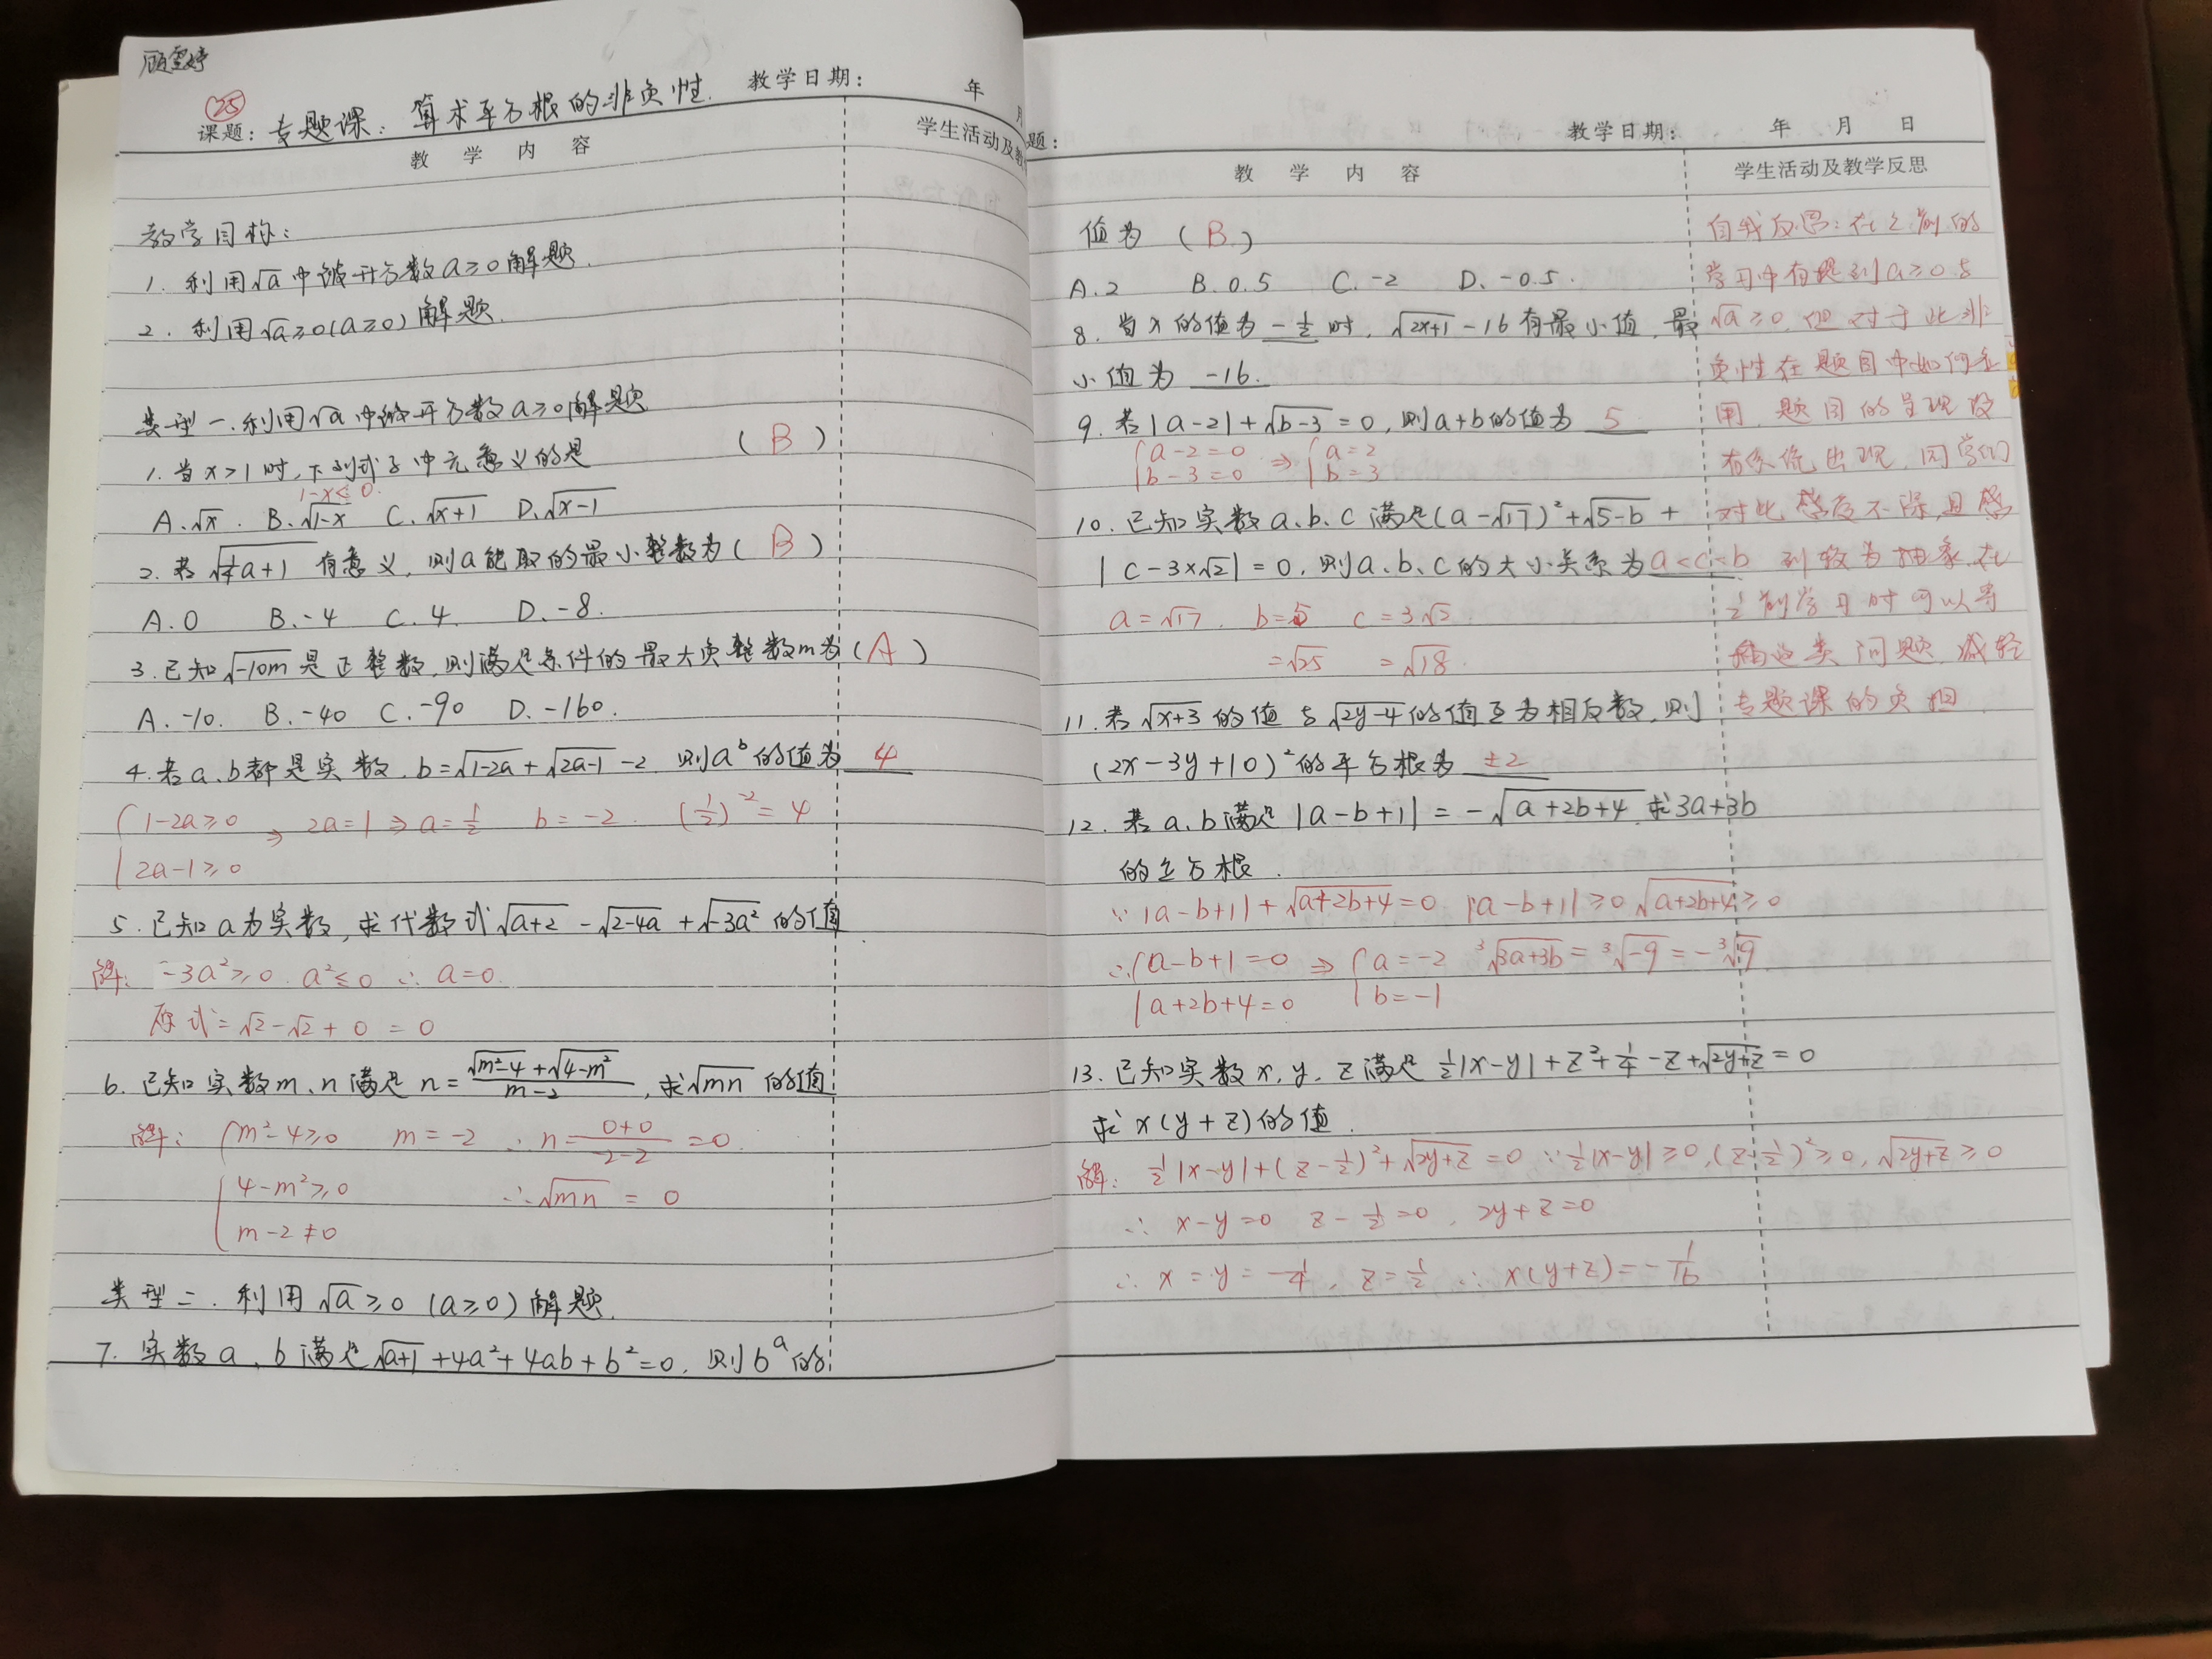 顾雪婷
㉕
课题：专题课：算术平方根的非负性. 教学日期： 年 月
教 学 内 容 学生活动及教
教学目标：
1. 利用√a 中被开方数 a≥0 解题.
2. 利用√a≥0(a≥0) 解题.
类型一. 利用√a 中被开方数 a≥0 解题
1. 当 x>1 时, 下列式子中无意义的是 (B)
1-x≤0.
A.√x. B.√(1-x) C.√(x+1) D.√(x-1)
2. 若 √(½a+1) 有意义, 则 a 能取的最小整数为 (B)
A.0 B.-4 C.4. D.-8.
3. 已知√(-10m) 是正整数, 则满足条件的最大负整数 m 为 (A)
A.-10. B.-40 C.-90 D.-160.
4. 若 a、b 都是实数. b=√(1-2a)+√(2a-1)-2 则 a^b 的值为 4
{1-2a≥0 ⇒ 2a=1 ⇒ a=½ b=-2. (½)^-2=4
2a-1≥0
5. 已知 a 为实数, 求代数式√(a+2) -√(2-4a) +√(-3a²) 的值.
解: -3a²≥0. a²≤0 ∴ a=0.
原式=√2-√2+0=0
6. 已知实数 m、n 满足 n=(√(m²-4)+√(4-m²))/(m-2), 求√(mn) 的值
解: {m²-4≥0 m=-2 ∴ n=(0+0)/(-2-2)=0.
4-m²≥0 ∴√(mn)=0
m-2≠0
类型二. 利用√a≥0 (a≥0) 解题.
7. 实数 a、b 满足√(a+1)+4a²+4ab+b²=0. 则 b^a 的
题： 教学日期： 年 月 日
教 学 内 容 学生活动及教学反思
值为 (B)
A.2 B.0.5 C.-2 D.-0.5.
8. 当 x 的值为 -½ 时, √(2x+1)-16 有最小值, 最
小值为 -16.
9. 若 |a-2|+√(b-3)=0, 则 a+b 的值为 5
{a-2=0 ⇒ {a=2
b-3=0 b=3
10. 已知实数 a、b、c 满足(a-√17)²+√(5-b)+
|c-3×√2|=0, 则 a、b、c 的大小关系为 a<c<b
a=√17. b=5 c=3√2
=√25 =√18.
11. 若√(x+3) 的值与√(2y-4) 的值互为相反数, 则
(2x-3y+10)² 的平方根为 ±2
12. 若 a、b 满足 |a-b+1|=-√(a+2b+4) 求 3a+3b
的立方根.
∵ |a-b+1|+√(a+2b+4)=0 |a-b+1|≥0 √(a+2b+4)≥0
∴{a-b+1=0 ⇒ {a=-2 ³√(3a+3b)=³√(-9)=-³√9
a+2b+4=0 b=-1
13. 已知实数 x, y, z 满足 ½|x-y|+z²+¼-z+√(2y+z)=0
求 x(y+z) 的值.
解: ½|x-y|+(z-½)²+√(2y+z)=0 ∵½|x-y|≥0, (z-½)²≥0, √(2y+z)≥0
∴ x-y=0 z-½=0, 2y+z=0
∴ x=y=-¼, z=½ ∴ x(y+z)=-1/16
自我反思：在之前的
学习中有提到 a≥0 与
√a≥0, 但对于此非
负性在题目中如何运
用, 题目的呈现没
有系统出现, 同学们
对比 不深, 且感
到较为抽象, 在
之前学习时可以穿
插此类问题, 减轻
专题课的负担.